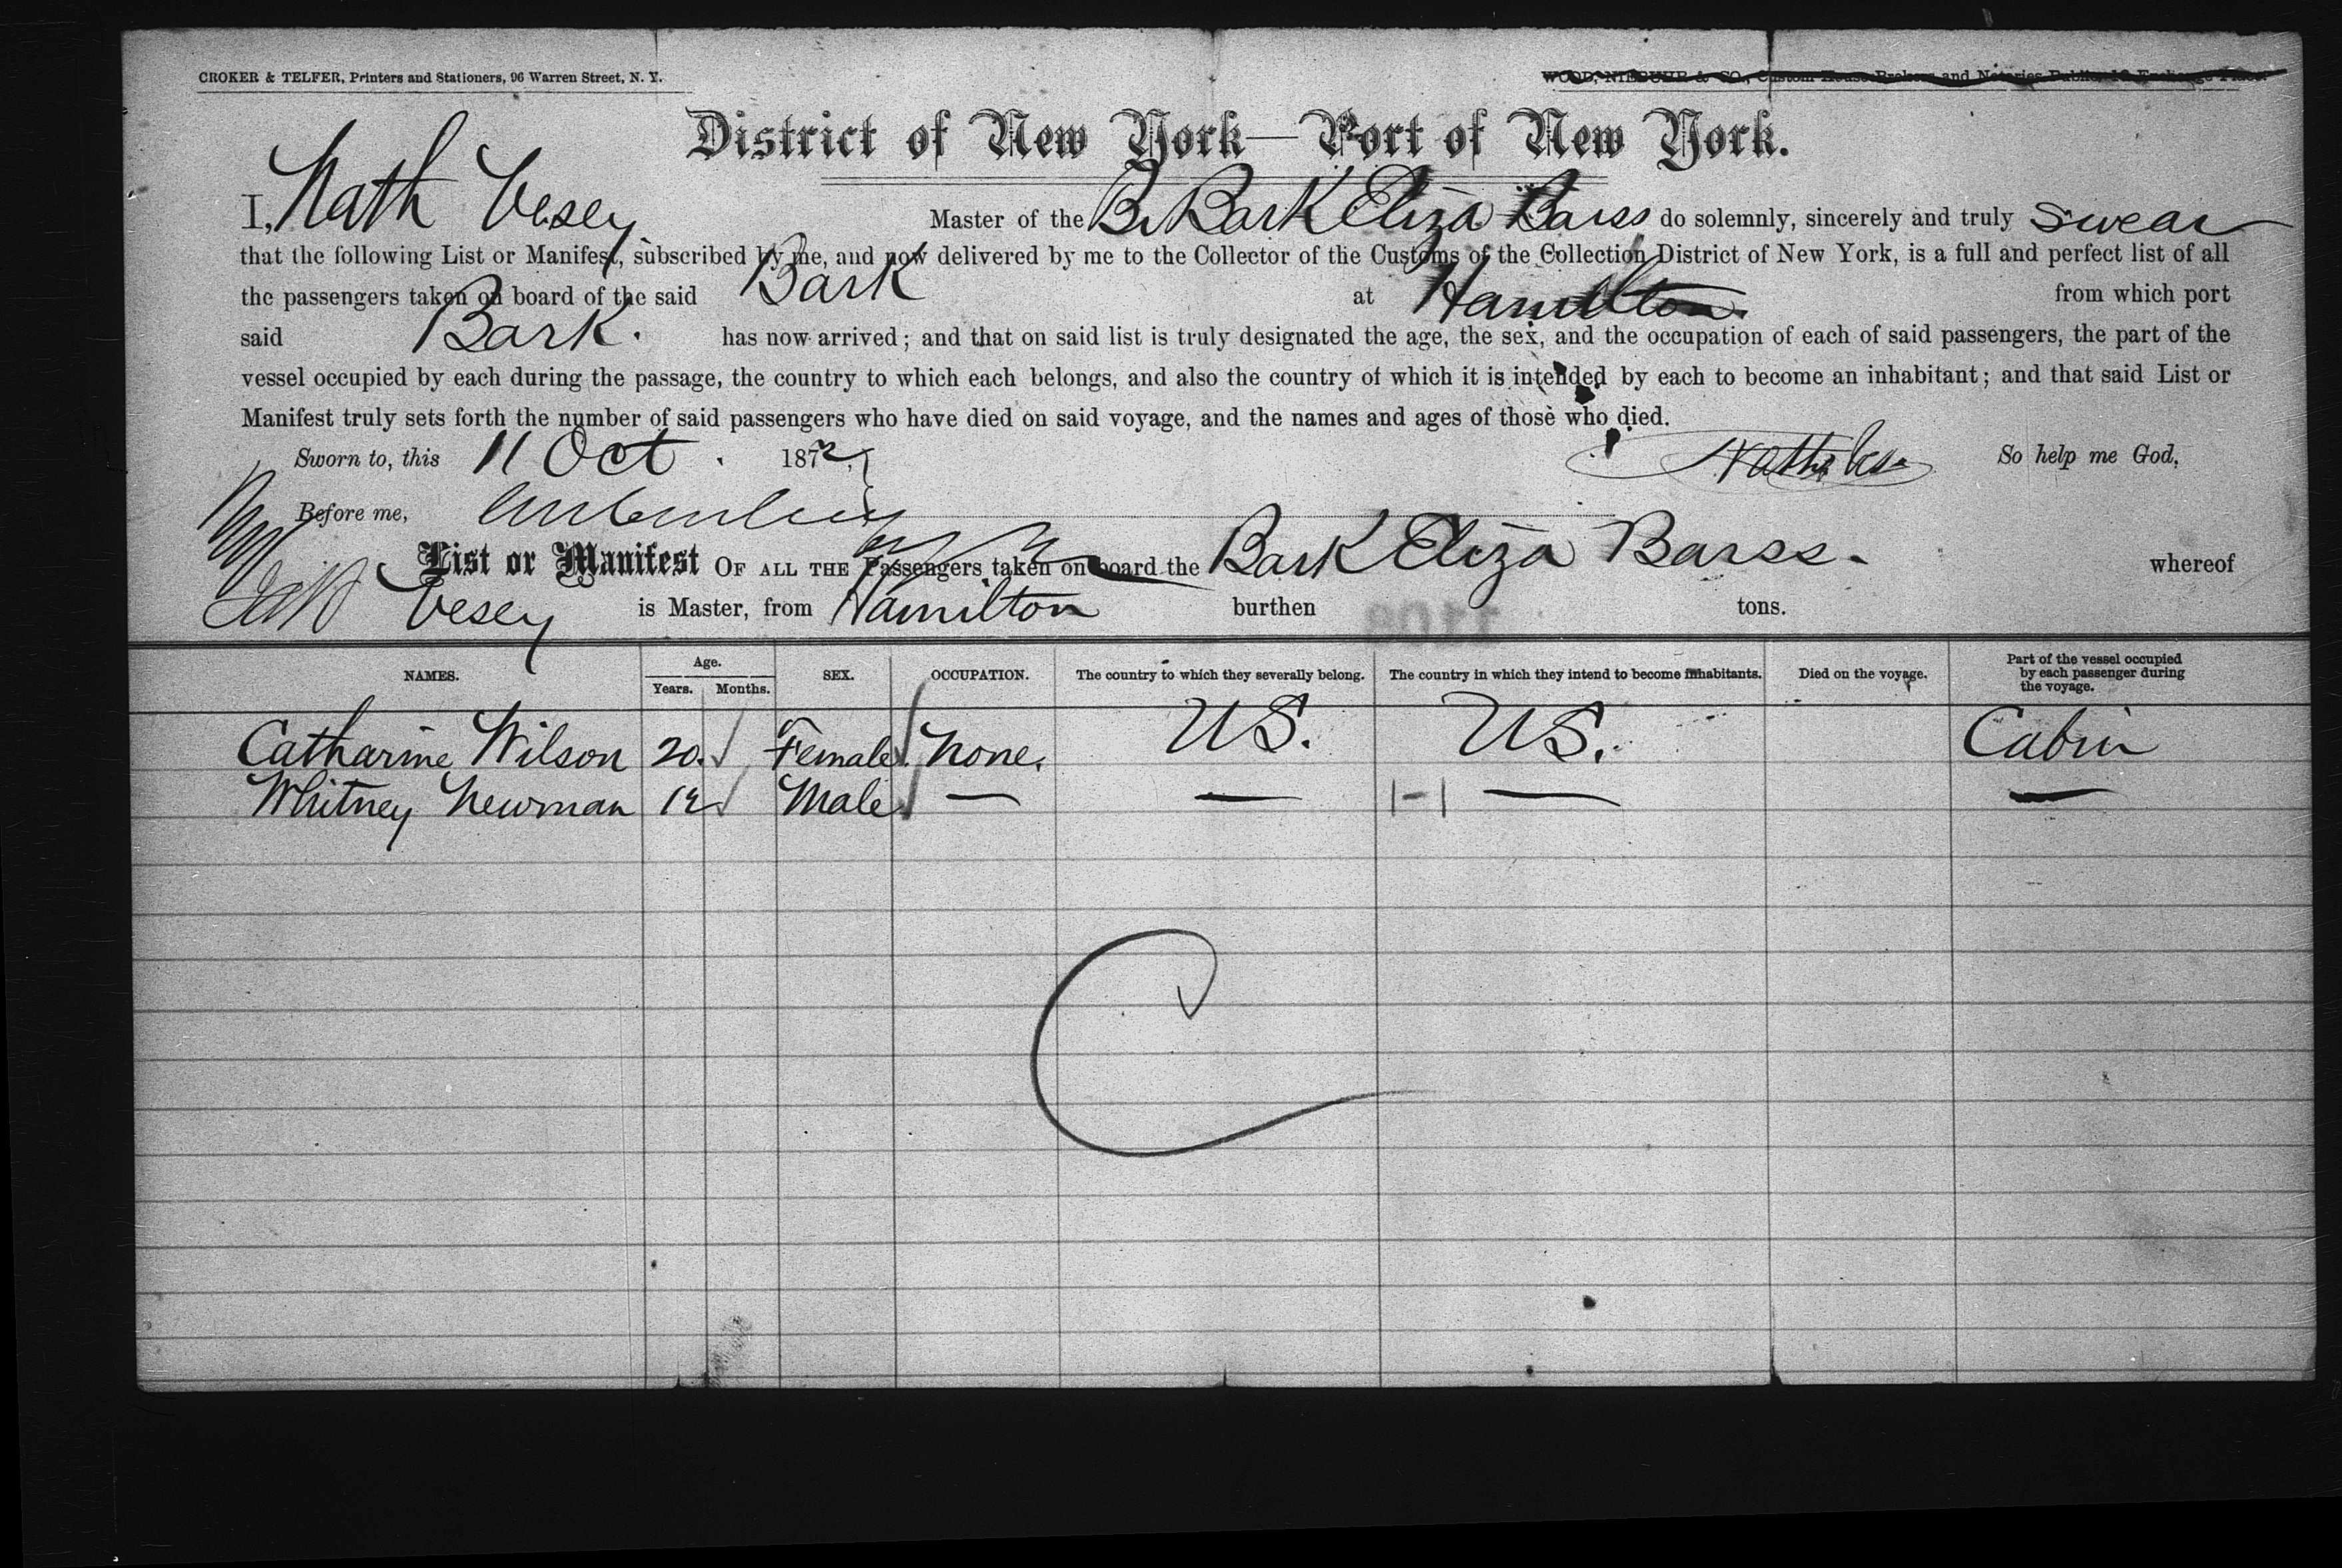 CROKER & TELFER, Printers and Stationers, 96 Warren Street, N. Y.
WOOD, NIEBUHR & CO., Custom House Brokers and Notaries Public, 18 Exchange Place.
District of New York—Port of New York.
I, Nath Vesey Master of the Br Bark Eliza Barss do solemnly, sincerely and truly swear
that the following List or Manifest, subscribed by me, and now delivered by me to the Collector of the Customs of the Collection District of New York, is a full and perfect list of all
the passengers taken on board of the said Bark at Hamilton from which port
said Bark. has now arrived; and that on said list is truly designated the age, the sex, and the occupation of each of said passengers, the part of the
vessel occupied by each during the passage, the country to which each belongs, and also the country of which it is intended by each to become an inhabitant; and that said List or
Manifest truly sets forth the number of said passengers who have died on said voyage, and the names and ages of those who died.
Sworn to, this 11 Oct. 1872, So help me God,
Before me,
List or Manifest OF ALL THE Passengers taken on board the Bark Eliza Barss. whereof
Vesey is Master, from Hamilton burthen tons.
NAMES. Age. Years. Months. SEX. OCCUPATION. The country to which they severally belong. The country in which they intend to become inhabitants. Died on the voyage. Part of the vessel occupied by each passenger during the voyage.
Catharine Wilson 20. Female. None. US. US. Cabin
Whitney Newman Male — — — —
C